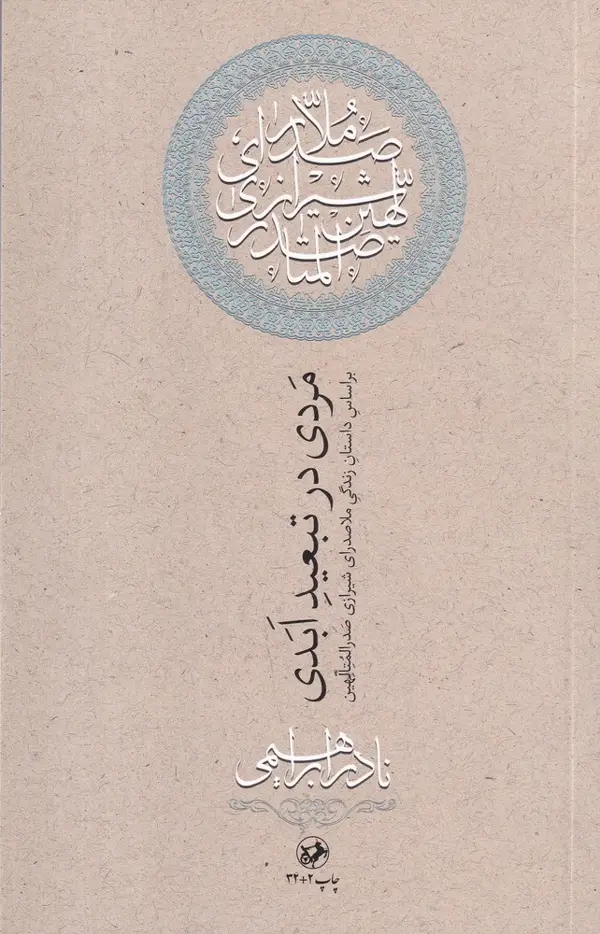 ملّا صدرای شیرازی صدرالمتألّهین
مَردی در تبعیدِ اَبَدی
براساسِ داستانِ زندگیِ ملاصدرای شیرازی صَدرالمُتِالّهین
نادر ابراهیمی
چاپ ۲+۳۲